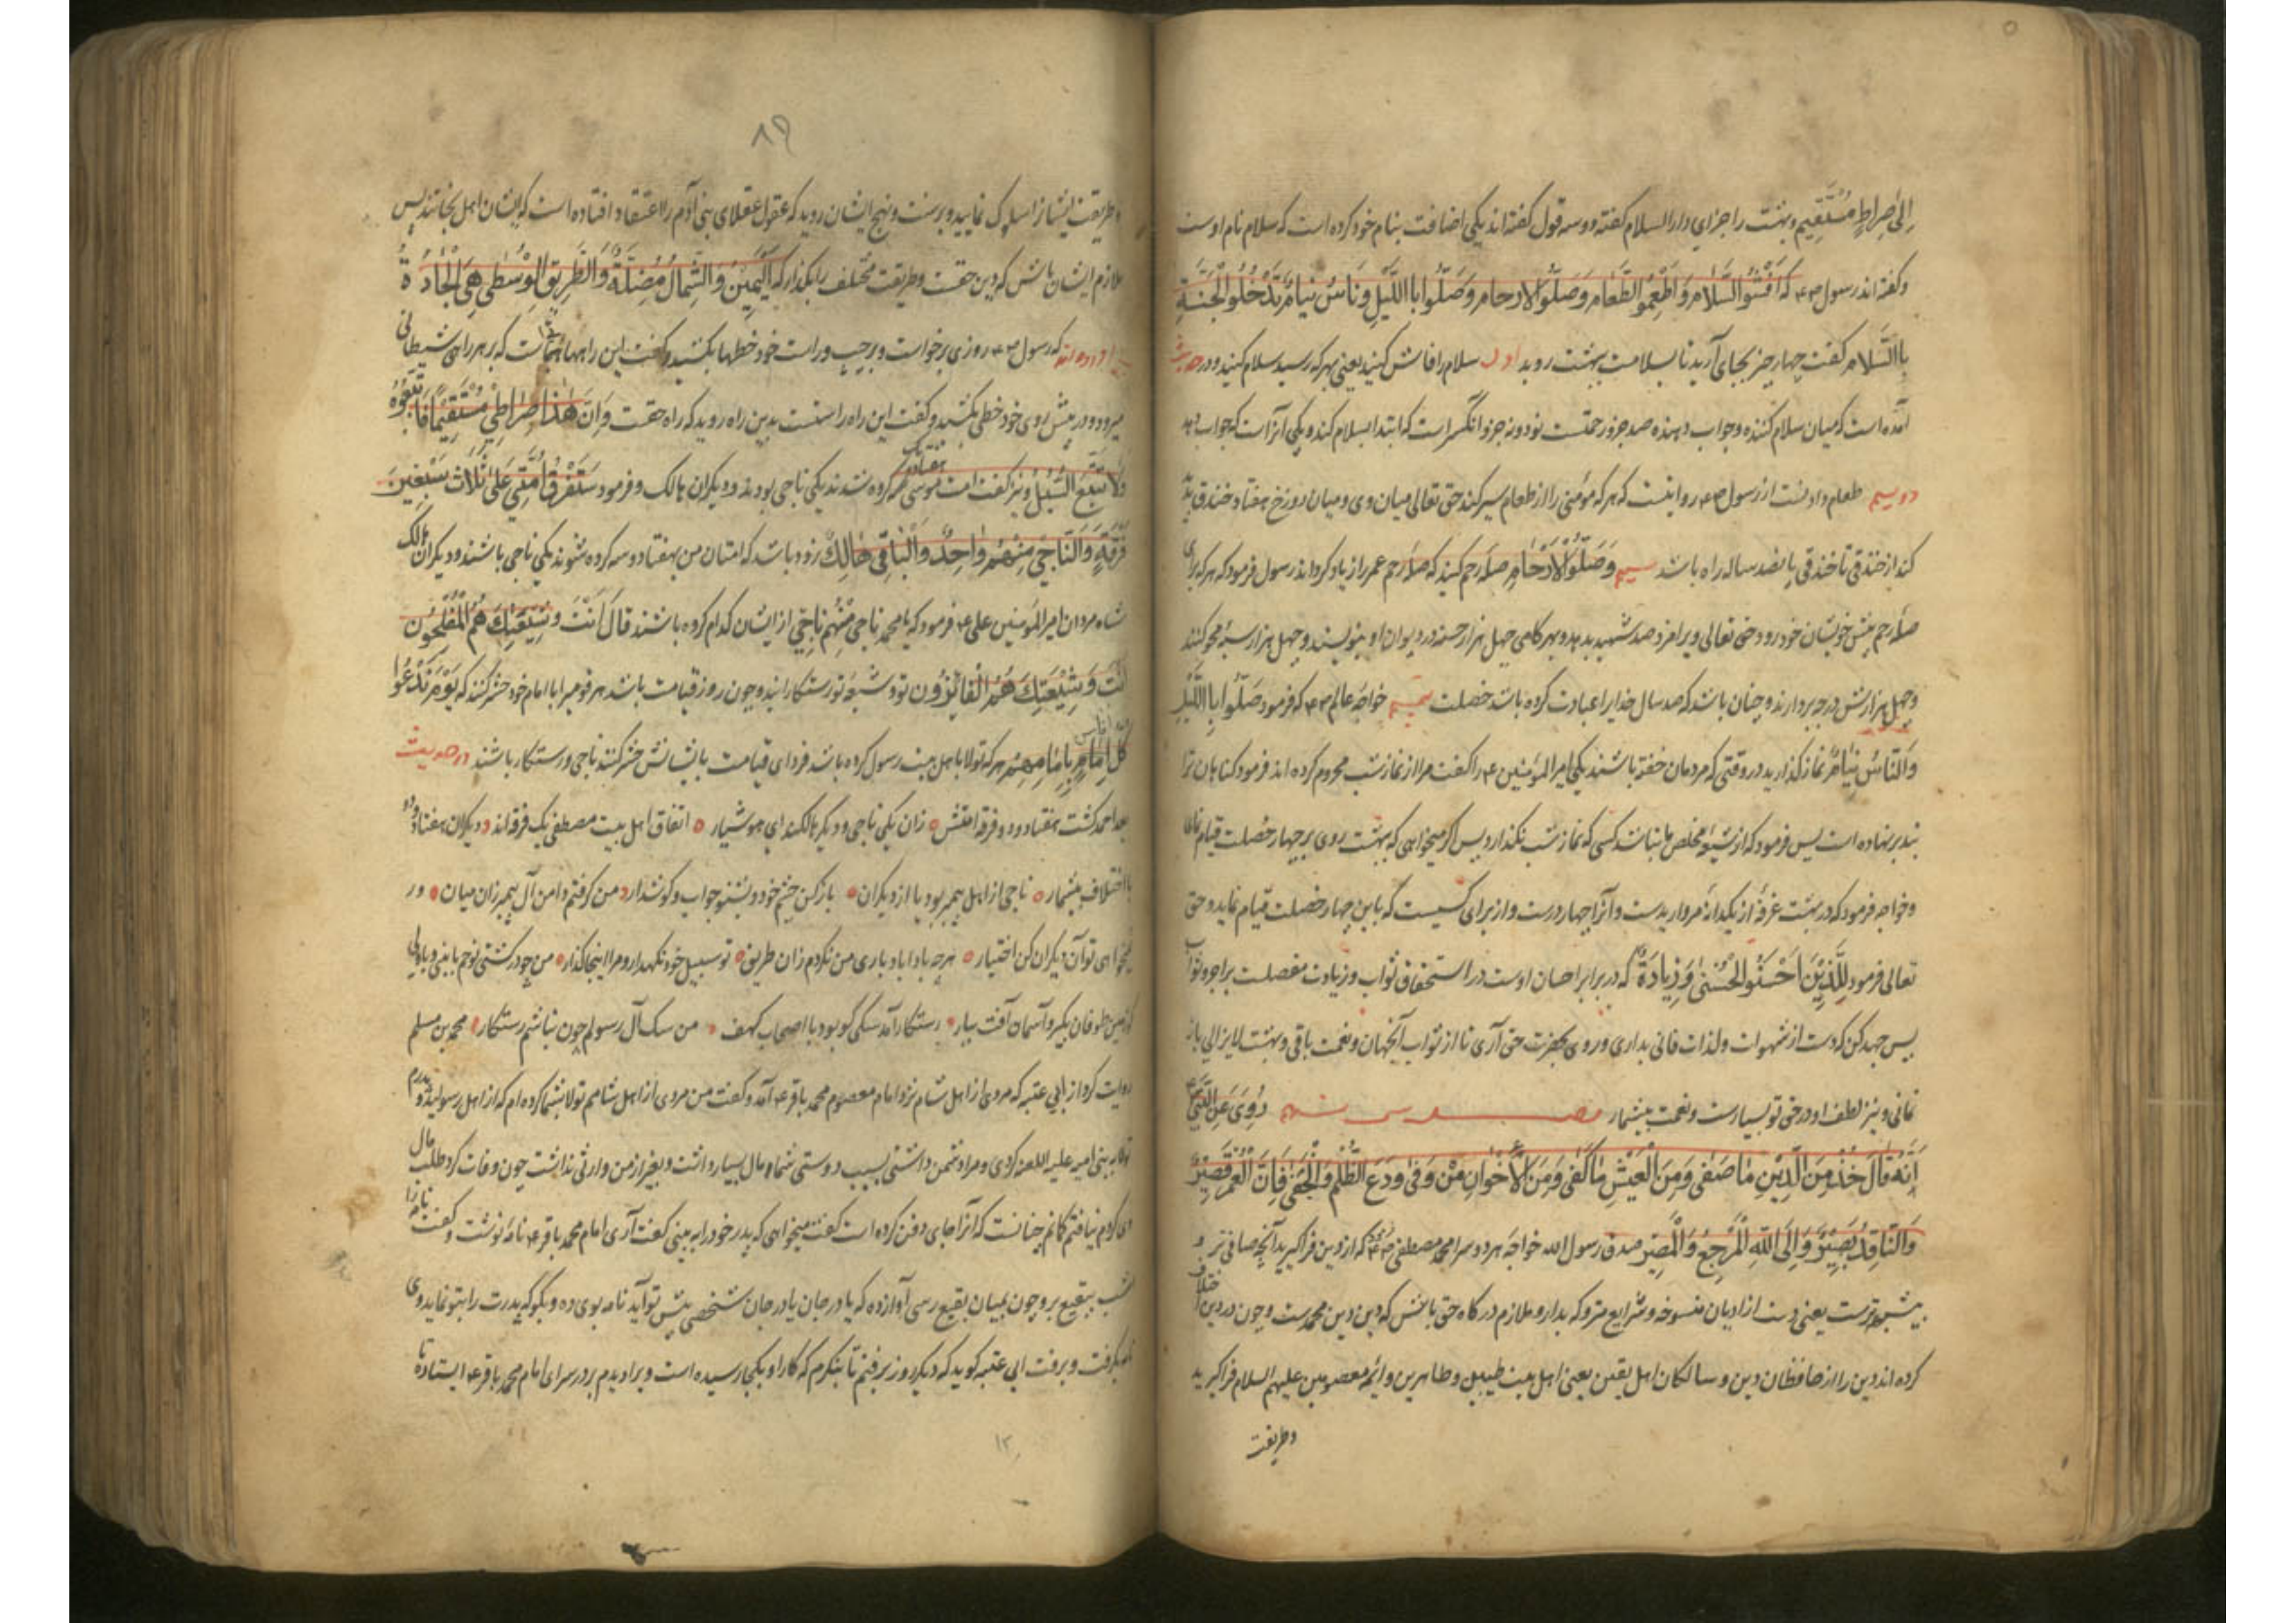 الی صراط مستقیم و بهشت را جزای دار السلام گفته و سه قول گفته اند یکی اضافت بنام خود کرده است که سلام نام اوست
و گفته اند رسول ص۴ که اَفْشُوا السَّلامَ وَاَطْعِمُو الطَّعامَ وَصَلُّوا الارحامَ وَصَلُّوا بااللَّیلِ وَنَاسُ نیامٌ تَدْخُلُو الْجَنَّةِ
باالسَّلامِ گفت چهار چیز بجای آرید تا بسلامت ببهشت روید اول سلام را فاش کنید یعنی بهر که رسید سلام کنید و در حدیث
آمده است که میان سلام کننده و جواب دهنده صد جزو رحمتست نود و نه جزو آنکس راست که ابتدا بسلام کند و یکی آنراست که جواب دهد
دویم طعام دادنست از رسول ص۴ روایتست که هر که مؤمنی را از طعام سیر کند حق تعالی میان وی و میان دوزخ هفتاد خندق پدید
کند از خندقی تا خندقی پانصد ساله راه باشد سیم وَصَلُّوا الْاَرْحامِ صله رحم کنید که صله رحم عمر را زیاد کرداند رسول فرمود که هر که برای
صله رحم پیش خویشان خود رود حق تعالی ویرا مزد صد شهید بدهد و بهر کامی چهل هزار حسنه در دیوان او بنویسند و چهل هزار سیئه محو کنند
و چهل هزارش درجه بردارند و چنان باشد که صد سال خدایرا عبادت کرده باشد خصلت خواجه عالم ص۴ که فرمود صَلُّوا بااللَّیْلِ
وَالنَّاسُ نِیامٌ نماز کذارید در وقتی که مردمان خفته باشند یکی امیر المؤمنین ۴ را گفت مرا از نماز شب محروم کرده اند فرمود کناهان ترا
بند بر نهاده است پس فرمود که از شیعۀ مخلص ما نباشد کسی که نماز شب نکذارد پس اکر میخواهی که بهشت روی بر چهار خصلت قیام نمای
و خواجه فرمود که در بهشت غرفۀ از یکدانه مروارید است و آنرا چهار درست و از برای کسیست که باین چهار خصلت قیام نماید و حق
تعالی فرمود لِلَّذِیْنَ اَحْسَنُو الْحُسْنیٰ وَزِیادَةٌ که در برابر احسان اوست در استحقاق ثواب و زیادت مفصلت بر اجر و ثواب
پس جهد کن که دست از شهوات و لذات فانی بداری و روی بحضرت حق آری تا از ثواب آنجهان و نعمت باقی و بهشت لایزالی باز
نمانی و نیز لطف او در حق تو بسیارست و نعمت بیشمار رُوِیَ عَنِ النَّبِیِّ
اَنَّهُ قالَ خُذْ مِنَ الدِّیْنِ ما صَفیٰ وَمِنَ الْعَیْشِ ما کَفیٰ وَمِنَ الْاَخْوانِ مَنْ وَفیٰ وَدَعَ الظُّلْمَ وَالْجَفیٰ فَاِنَّ الْعُمْرَ قَصِیْرٌ
وَالنَّاقِدُ بَصِیْرٌ وَاِلَی اللهِ الْمَرْجِعُ وَالْمَصِیْرِ صدق رسول الله خواجه هر دو سرا محمد مصطفی ص۴ گفت که از دین فرا کیرید آنچه صافی تر و
بیشبهه ترست یعنی دست از ادیان منسوخه و شرایع متروکه بدار و ملازم درکاه حق باش که دین دین محمدست و چون در دین اختلاف
کرده اند دین را از حافظان دین و سالکان اهل یقین یعنی اهل بیت طیبین و طاهرین و ائمه معصومین علیهم السلام فرا کیرید
و طریقت
۸۹
و طریقت ایشانرا سلوک نمایید و بر سنت و نهج ایشان روید که عقول عقلای بنی آدم را اعتقاد افتاده است که ایشان اهل نجاتند پس
ملازم ایشان باش که دین حقست و طریقت مختلف را بکذار که اَلْیَمِیْنُ وَالشِّمالُ مُضِلَّةٌ وَالطَّرِیْقِ الْوُسْطیٰ هِیَ الْجادَةُ
آورده اند که رسول ص۴ روزی برخاست و بر چپ و راست خود خطها بکشید و گفت این راهها آنست که بر هر راهی شیطانی
میرود و در پیش روی خود خطی بکشید و گفت این راه راستست بدین راه روید که راه حقست وَاِنَّ هٰذا صِراطِیْ مُسْتَقِیْماً فَاتَّبِعُوْهُ
وَلا تَتَّبِعُ السُّبُلَ و نیز گفت امت موسی هفتاد و یک گروه شدند یکی ناجی بودند و دیگران هالک و فرمود سَتَفْرُقُ اُمَّتِیْ عَلیٰ ثَلاث سَبْعِیْنَ
فِرْقَةٍ وَالنَّاجِیْ مِنْهُمْ واحِدٌ وَالْباقِیْ هالِکٌ زود باشد که امتان من بهفتاد و سه گروه شوند یکی ناجی باشند و دیگران هالک
شاه مردان امیر المؤمنین علی ۴ فرمود که یا محمد ناجی مِنْهُم ناجی از ایشان کدام گروه باشند قالَ اَنْتَ وَشِیْعَتِکَ هُمُ الْمُفْلِحُون
اَنْتَ وَشِیْعَتِکَ هُمُ الْفائِزُون تو و شیعۀ تو رستکارانید و چون روز قیامت باشد هر قومیرا با امام خود حشر کنند که یَوْمَ نَدْعُوا
کُلَّ اُناسٍ بِاِمامِهِمْ هر که تولا باهل بیت رسول کرده باشد فردای قیامت با ایشانش حشر کنند ناجی و رستکار باشند در حدیث
بعد احمد کشت هفتاد و دو فرقه امتش زان یکی ناجی و دیگر هالکند ای هوشیار اتفاق اهل بیت مصطفی یک فرقه اند دیگران هفتاد و دو
با اختلاف بیشمار ناجی از اهل پیمبر بود یا از دیگران باز کن چشم خود و بشنو جواب و گوشدار من گرفتم دامن آل پیمبر زان میان ور
میخواهی تو آن دیگران کن اختیار هرچه بادا باد باری من نکردم زان طریق تو سبیل خود نکهدار و مرا اینجا گذار من چو در کشتی نوحم با نبی و با ولی
گر زمین طوفان بگیرد آسمان آفت ببار رستکار آمد سگی کو بود با اصحاب کهف من سک آل رسولم چون نباشم رستکار محمد بن مسلم
روایت کرد از ابی عتبه که مردی از اهل شام نزد امام معصوم محمد باقر ۴ آمد و گفت من مردی از اهل شامم تولا بشما کرده ام که از اهل رسولید و پدرم
تولا به بنی امیه علیه اللعنه کردی و مرا دشمن داشتی بسبب دوستی شما و مال بسیار داشت و بغیر از من وارثی نداشت چون وفات کرد طلب مال
وی کردم نیافتم کمانم چنانست که آنرا جای دفن کرده است گفت میخواهی که پدر خود را ببینی گفت آری امام محمد باقر ۴ نامه نوشت و گفت نامه را
شب ببقیع بر و چون بمیان بقیع رسی آواز ده که یا درجان یا درجان شخصی پیش تو آید نامه بوی ده و بگو که پدرت را بتو نماید وی
نامه بگرفت و برفت ابی عتبه گوید که دیگر روز برفتم تا بنگرم که کار او بکجا رسیده است ویرا دیدم بر در سرای امام محمد باقر ۴ ایستاده تا
۱۲